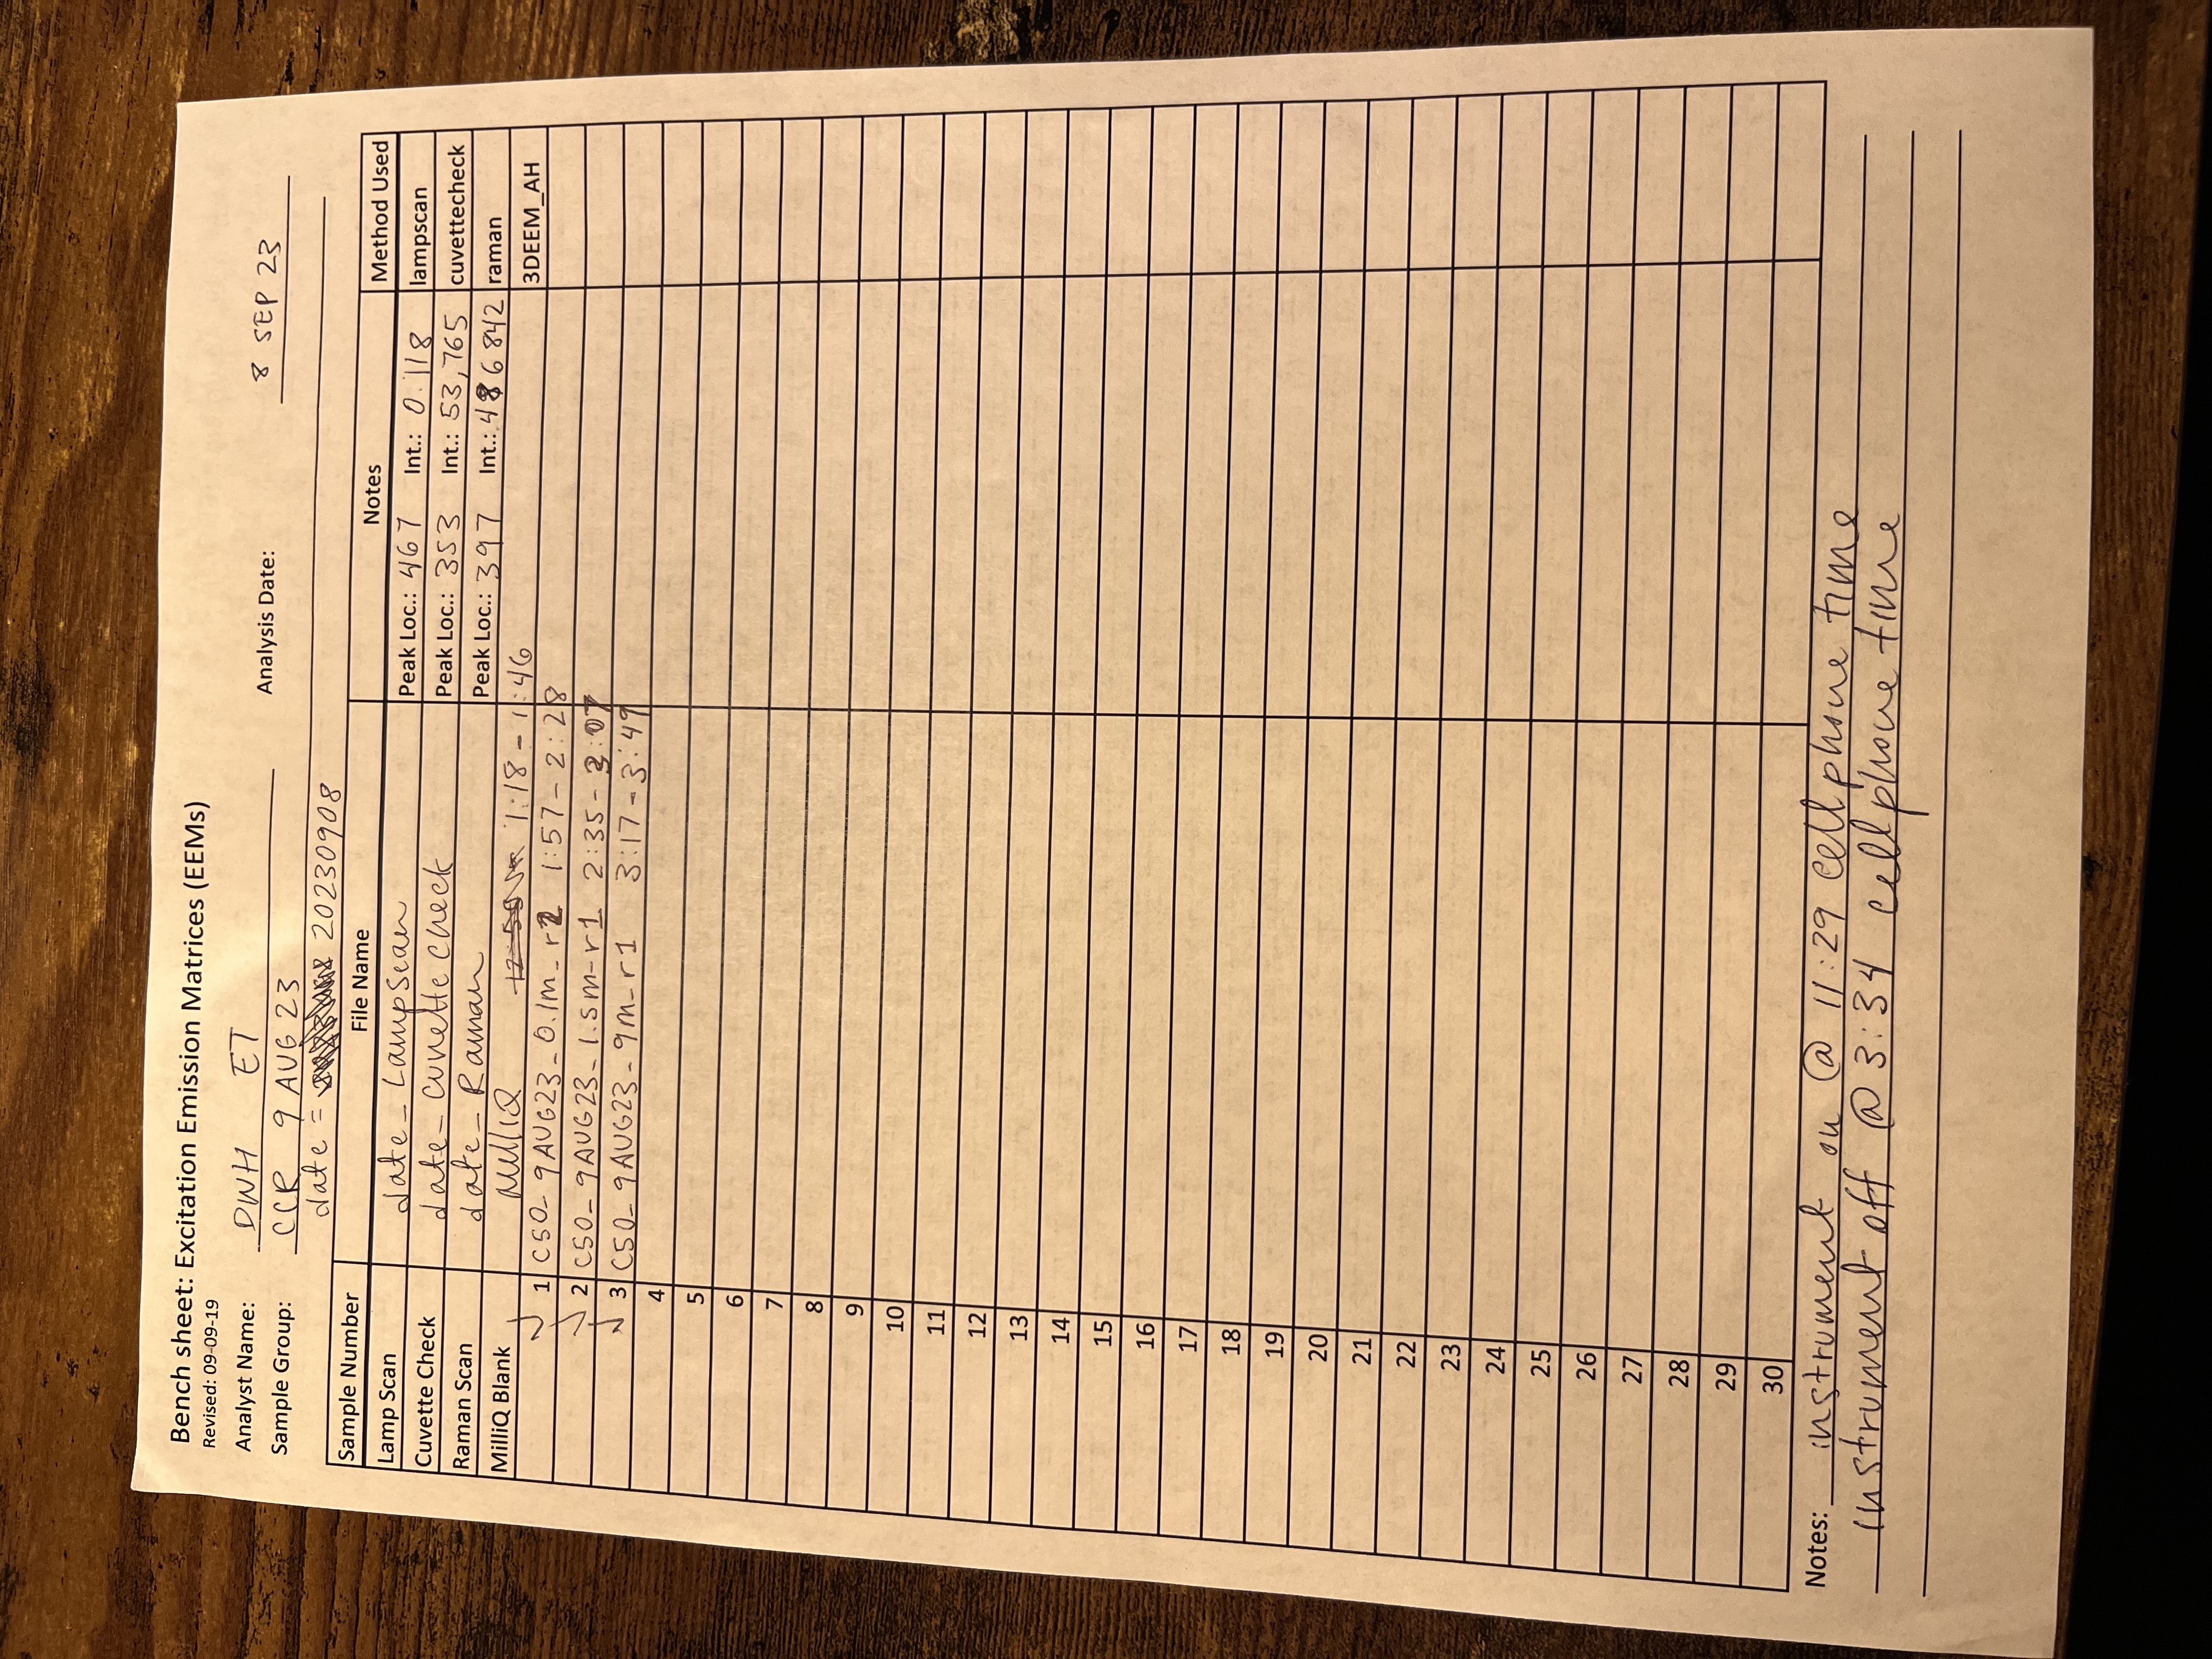 Bench sheet: Excitation Emission Matrices (EEMs)
Revised: 09-09-19
Analyst Name: DWH ET Analysis Date: 8 SEP 23
Sample Group: CCR 9 AUG 23
date = 20230908
Sample Number File Name Notes Method Used
Lamp Scan date_LampScan Peak Loc.: 467 Int.: 0.118 lampscan
Cuvette Check date_cuvette check Peak Loc.: 353 Int.: 53,765 cuvettecheck
Raman Scan date_Raman Peak Loc.: 397 Int.: 486842 raman
MilliQ Blank MilliQ 1:18-1:46 3DEEM_AH
1 C50_9AUG23_0.1m_r2 1:57-2:28
2 C50_9AUG23_1.5m-r1 2:35-3:07
3 C50_9AUG23_9m_r1 3:17-3:49
4
5
6
7
8
9
10
11
12
13
14
15
16
17
18
19
20
21
22
23
24
25
26
27
28
29
30
Notes: instrument on @ 11:29 cellphone time
instrument off @ 3:34 cellphone time